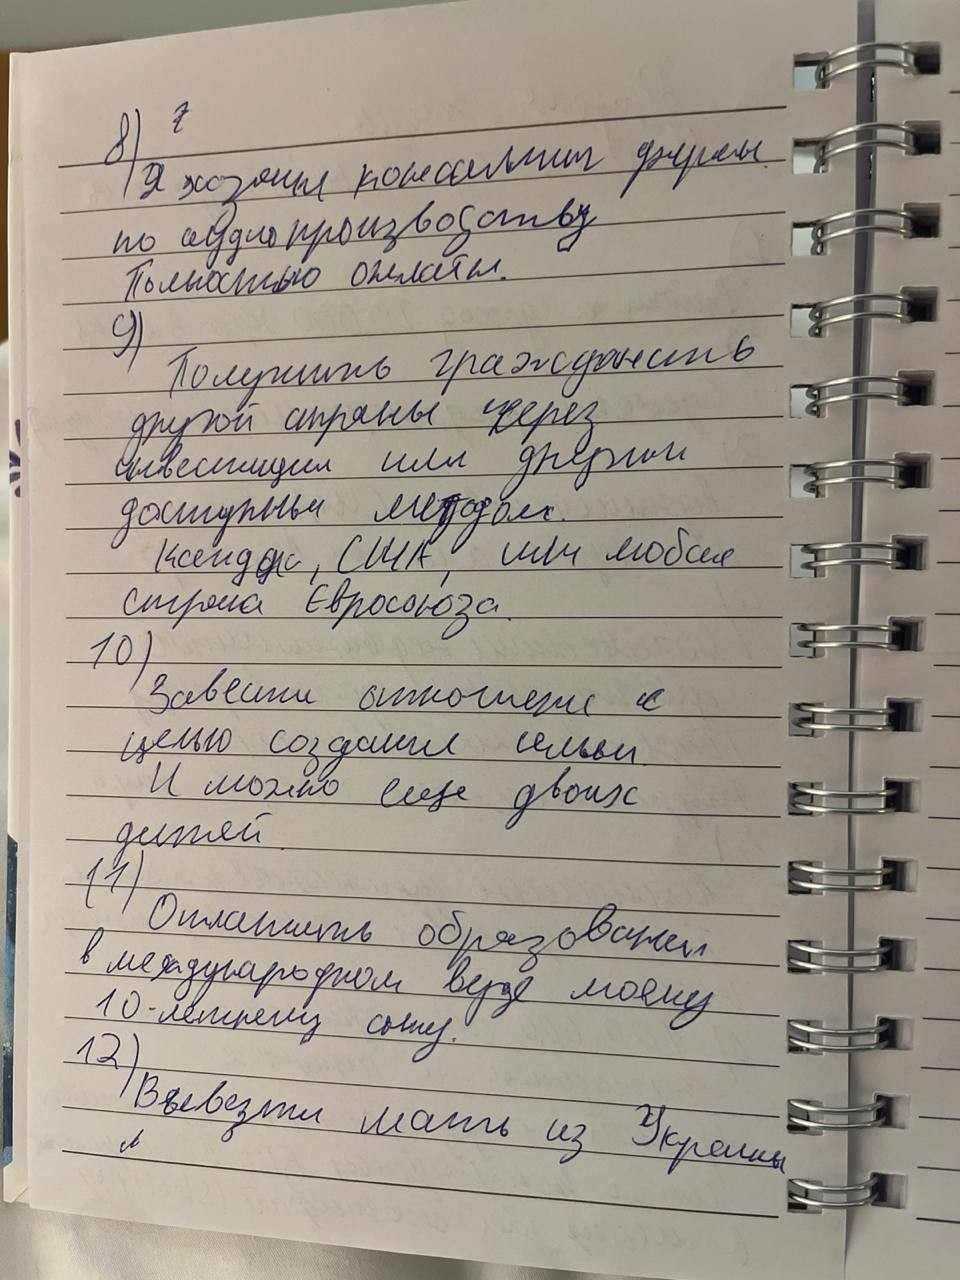 8)
Я хозяин консалтинг фирмы
по аудиопроизводству
Полностью онлайн.
9)
Получить гражданств
другой страны через
инвестиции или другим
доступным методом.
Канада, США, или любая
страна Евросоюза.
10)
Завести отношения с
целью создания семьи.
И можно еще двоих
детей
11)
Оплатить образования
в международном вузе моему
10-летнему сыну.
12)
Вывезти мать из Украины